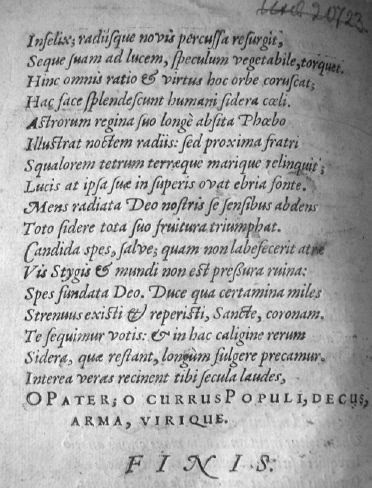 Infelix; radiisque novis percussa resurgit,
Seque suam ad lucem, speculum vegetabile, torquet.
Hinc omnis ratio & virtus hoc orbe coruscat;
Hac face splendescunt humani sidera cœli.
Astrorum regina suo longè absita Phœbo
Illustrat noctem radiis: sed proxima fratri
Squalorem tetrum terræque marique relinquit;
Lucis at ipsa suæ in superis ovat ebria fonte.
Mens radiata Deo nostris se sensibus abdens
Toto sidere tota suo fruitura triumphat.
Candida spes, salve; quam non labefecerit atræ
Vis Stygis & mundi non est pressura ruina:
Spes fundata Deo. Duce qua certamina miles
Strenuus existi & reperisti, Sancte, coronam.
Te sequimur votis: & in hac caligine rerum
Sidera, quæ restant, longùm fulgere precamur.
Interea veras recinent tibi secula laudes,
O PATER; O CURRUS POPULI, DECUS,
ARMA, VIRIQUE.
FINIS.